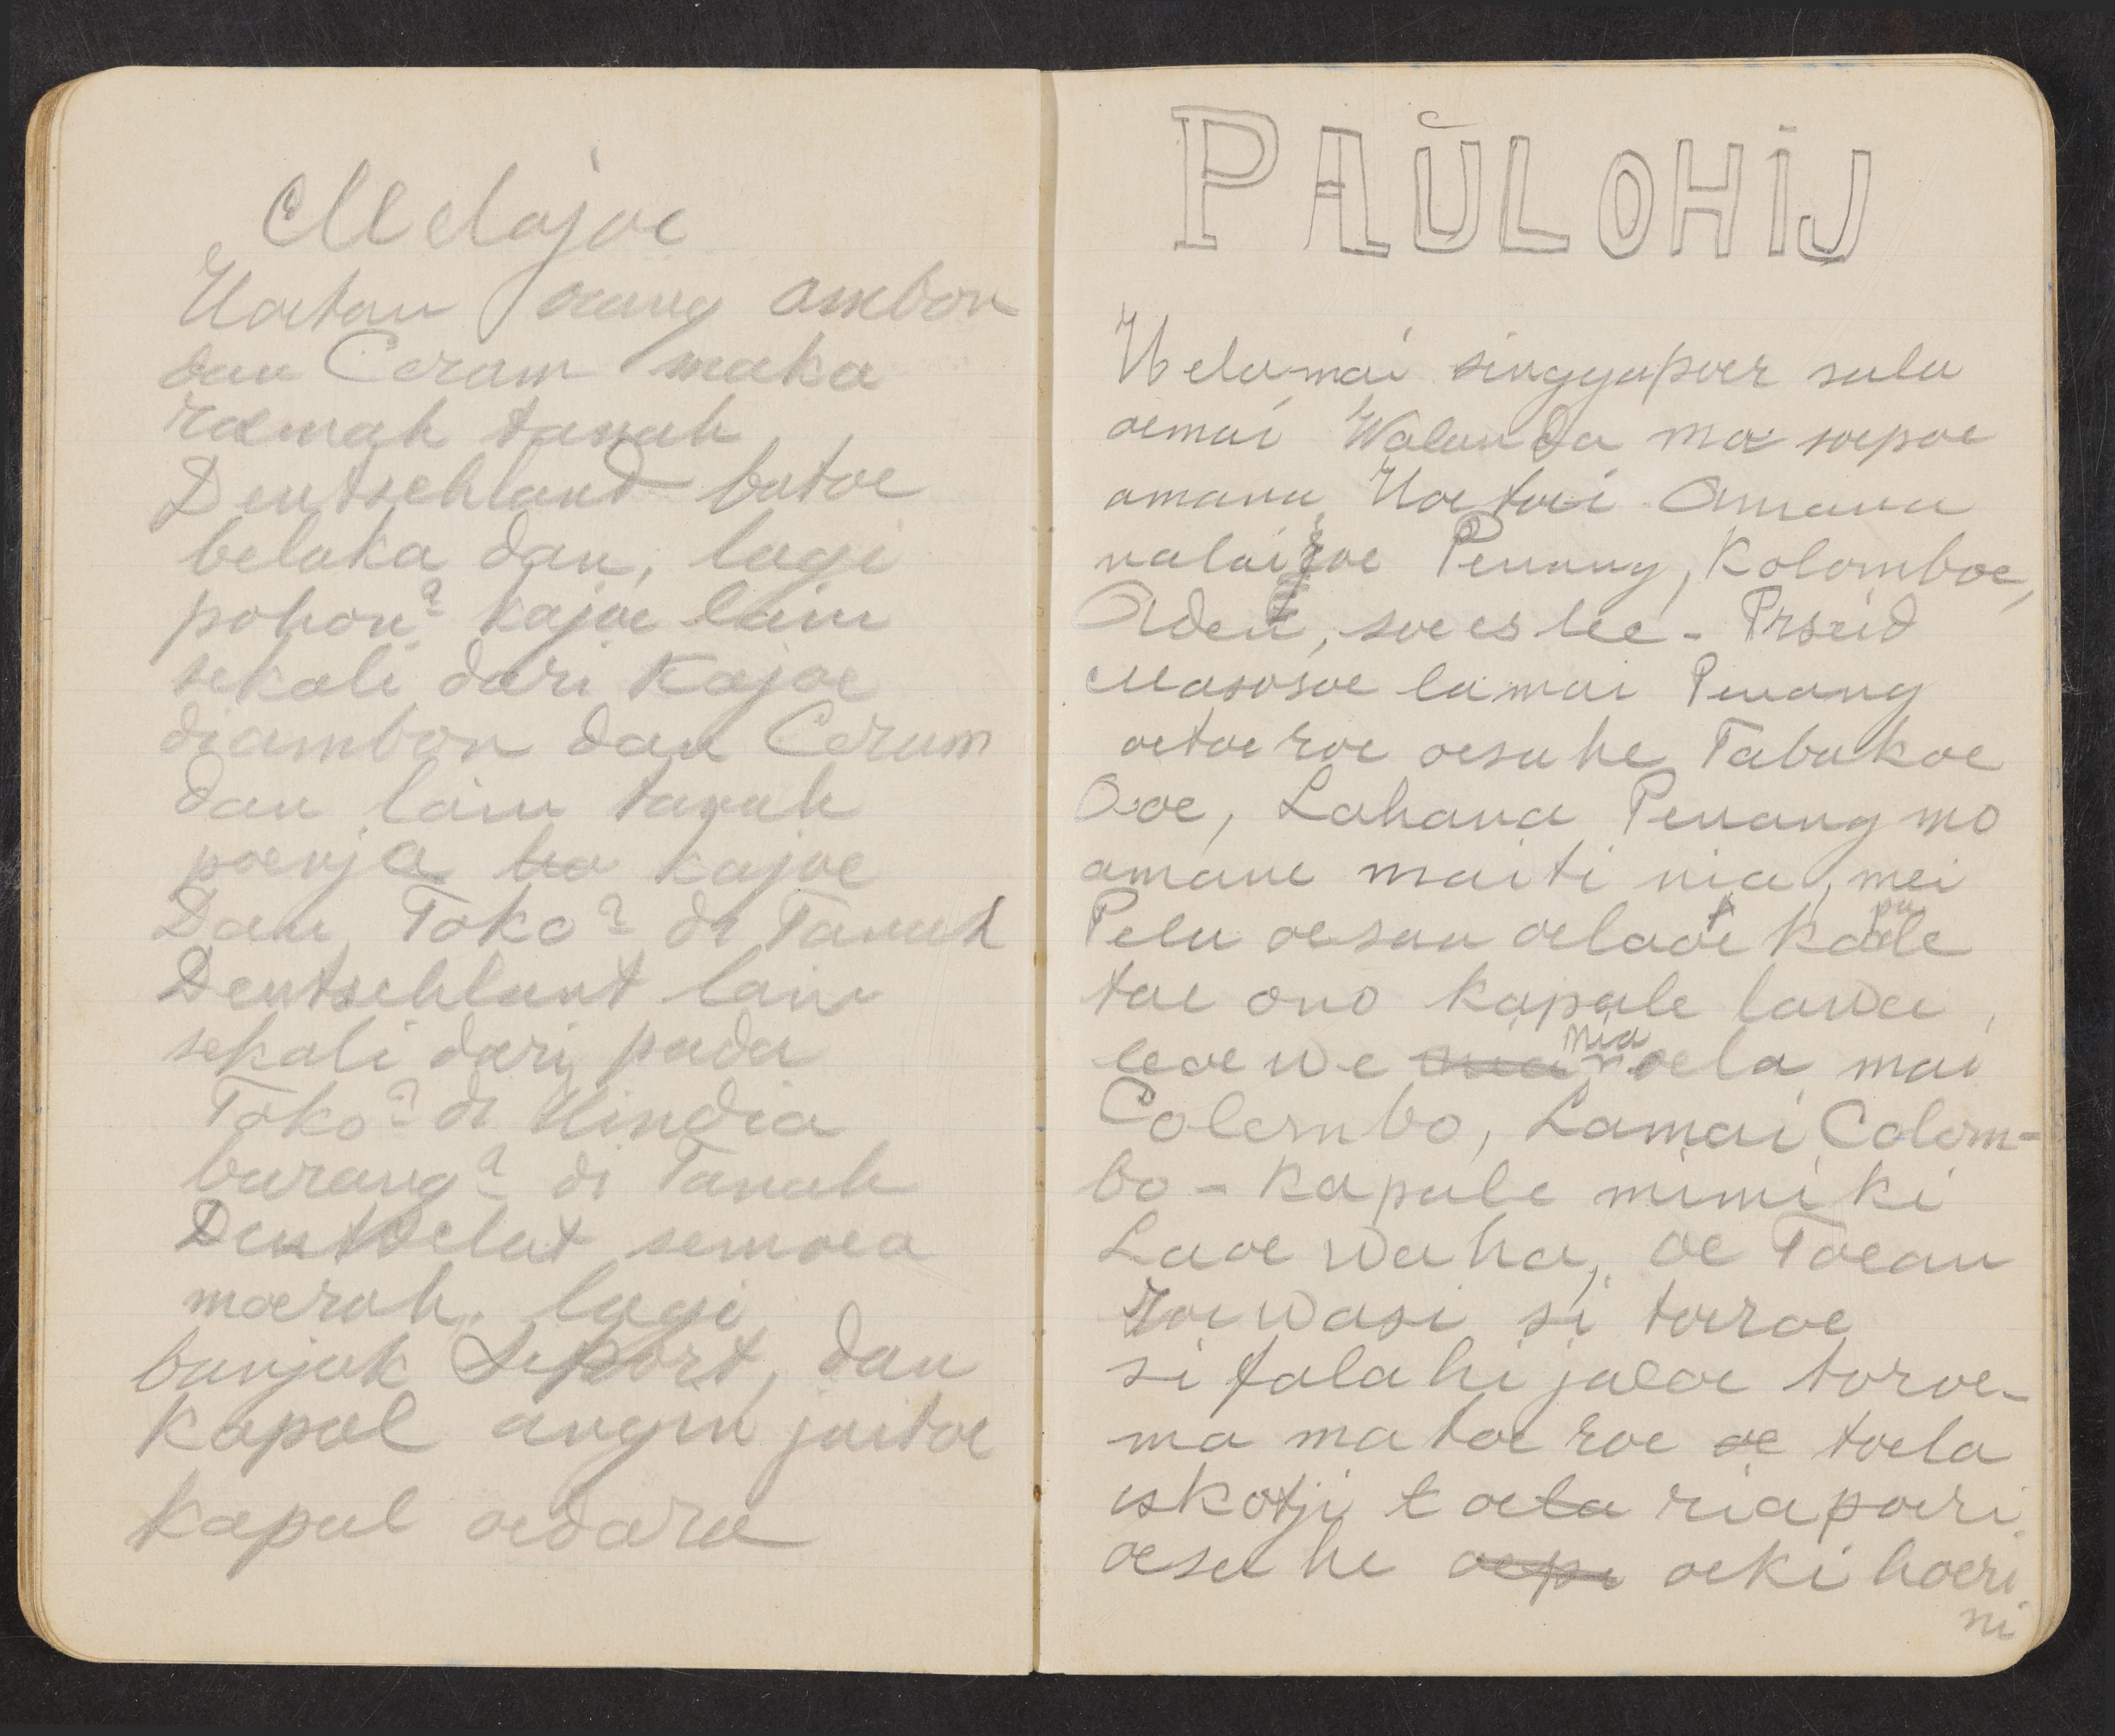 Melajoe
Hoetan orang ambon
dan Ceram maka
roemah tanah
Deutschland batoe
belaka dan, lagi
pohon2 kajoe lain
sekali dari Kajoe
diambon dan Ceram
dan lain tanah
poenja kajoe
Dan Toko2 di Tanah
Deutschlant lain
sekali dari pada
Toko2 di Hindia
barang2 di Tanah
semoea
moerah. lagi
banjak Seport, dan
Kapal angin jaitoe
Kapal oedara
PAŬLOHIJ
Helamai singgapoer sala
oemai Walanda ma soepoe
amana Hoetoei Amana
Penang, Kolomboe,
Aden, soees lee - Prseid
Masosoe lamai Penang
oetoe roe oesa he Tabakoe
Ooe, Lahana Penang mo
amane maiti nia, mei
Pela oesaa
toe ono kapale lawa,
leoe we nia oela mai
Colembo, Lamai Colom-
bo - Kapale mimi ki
Laoe waha, oe Toean
Roe wasi si toeroe
si fala hi jaloe toroe-
ma ma toe roe oe toela
iskotji toela ria poeri
oesa he oepe oeki hoeri
ni